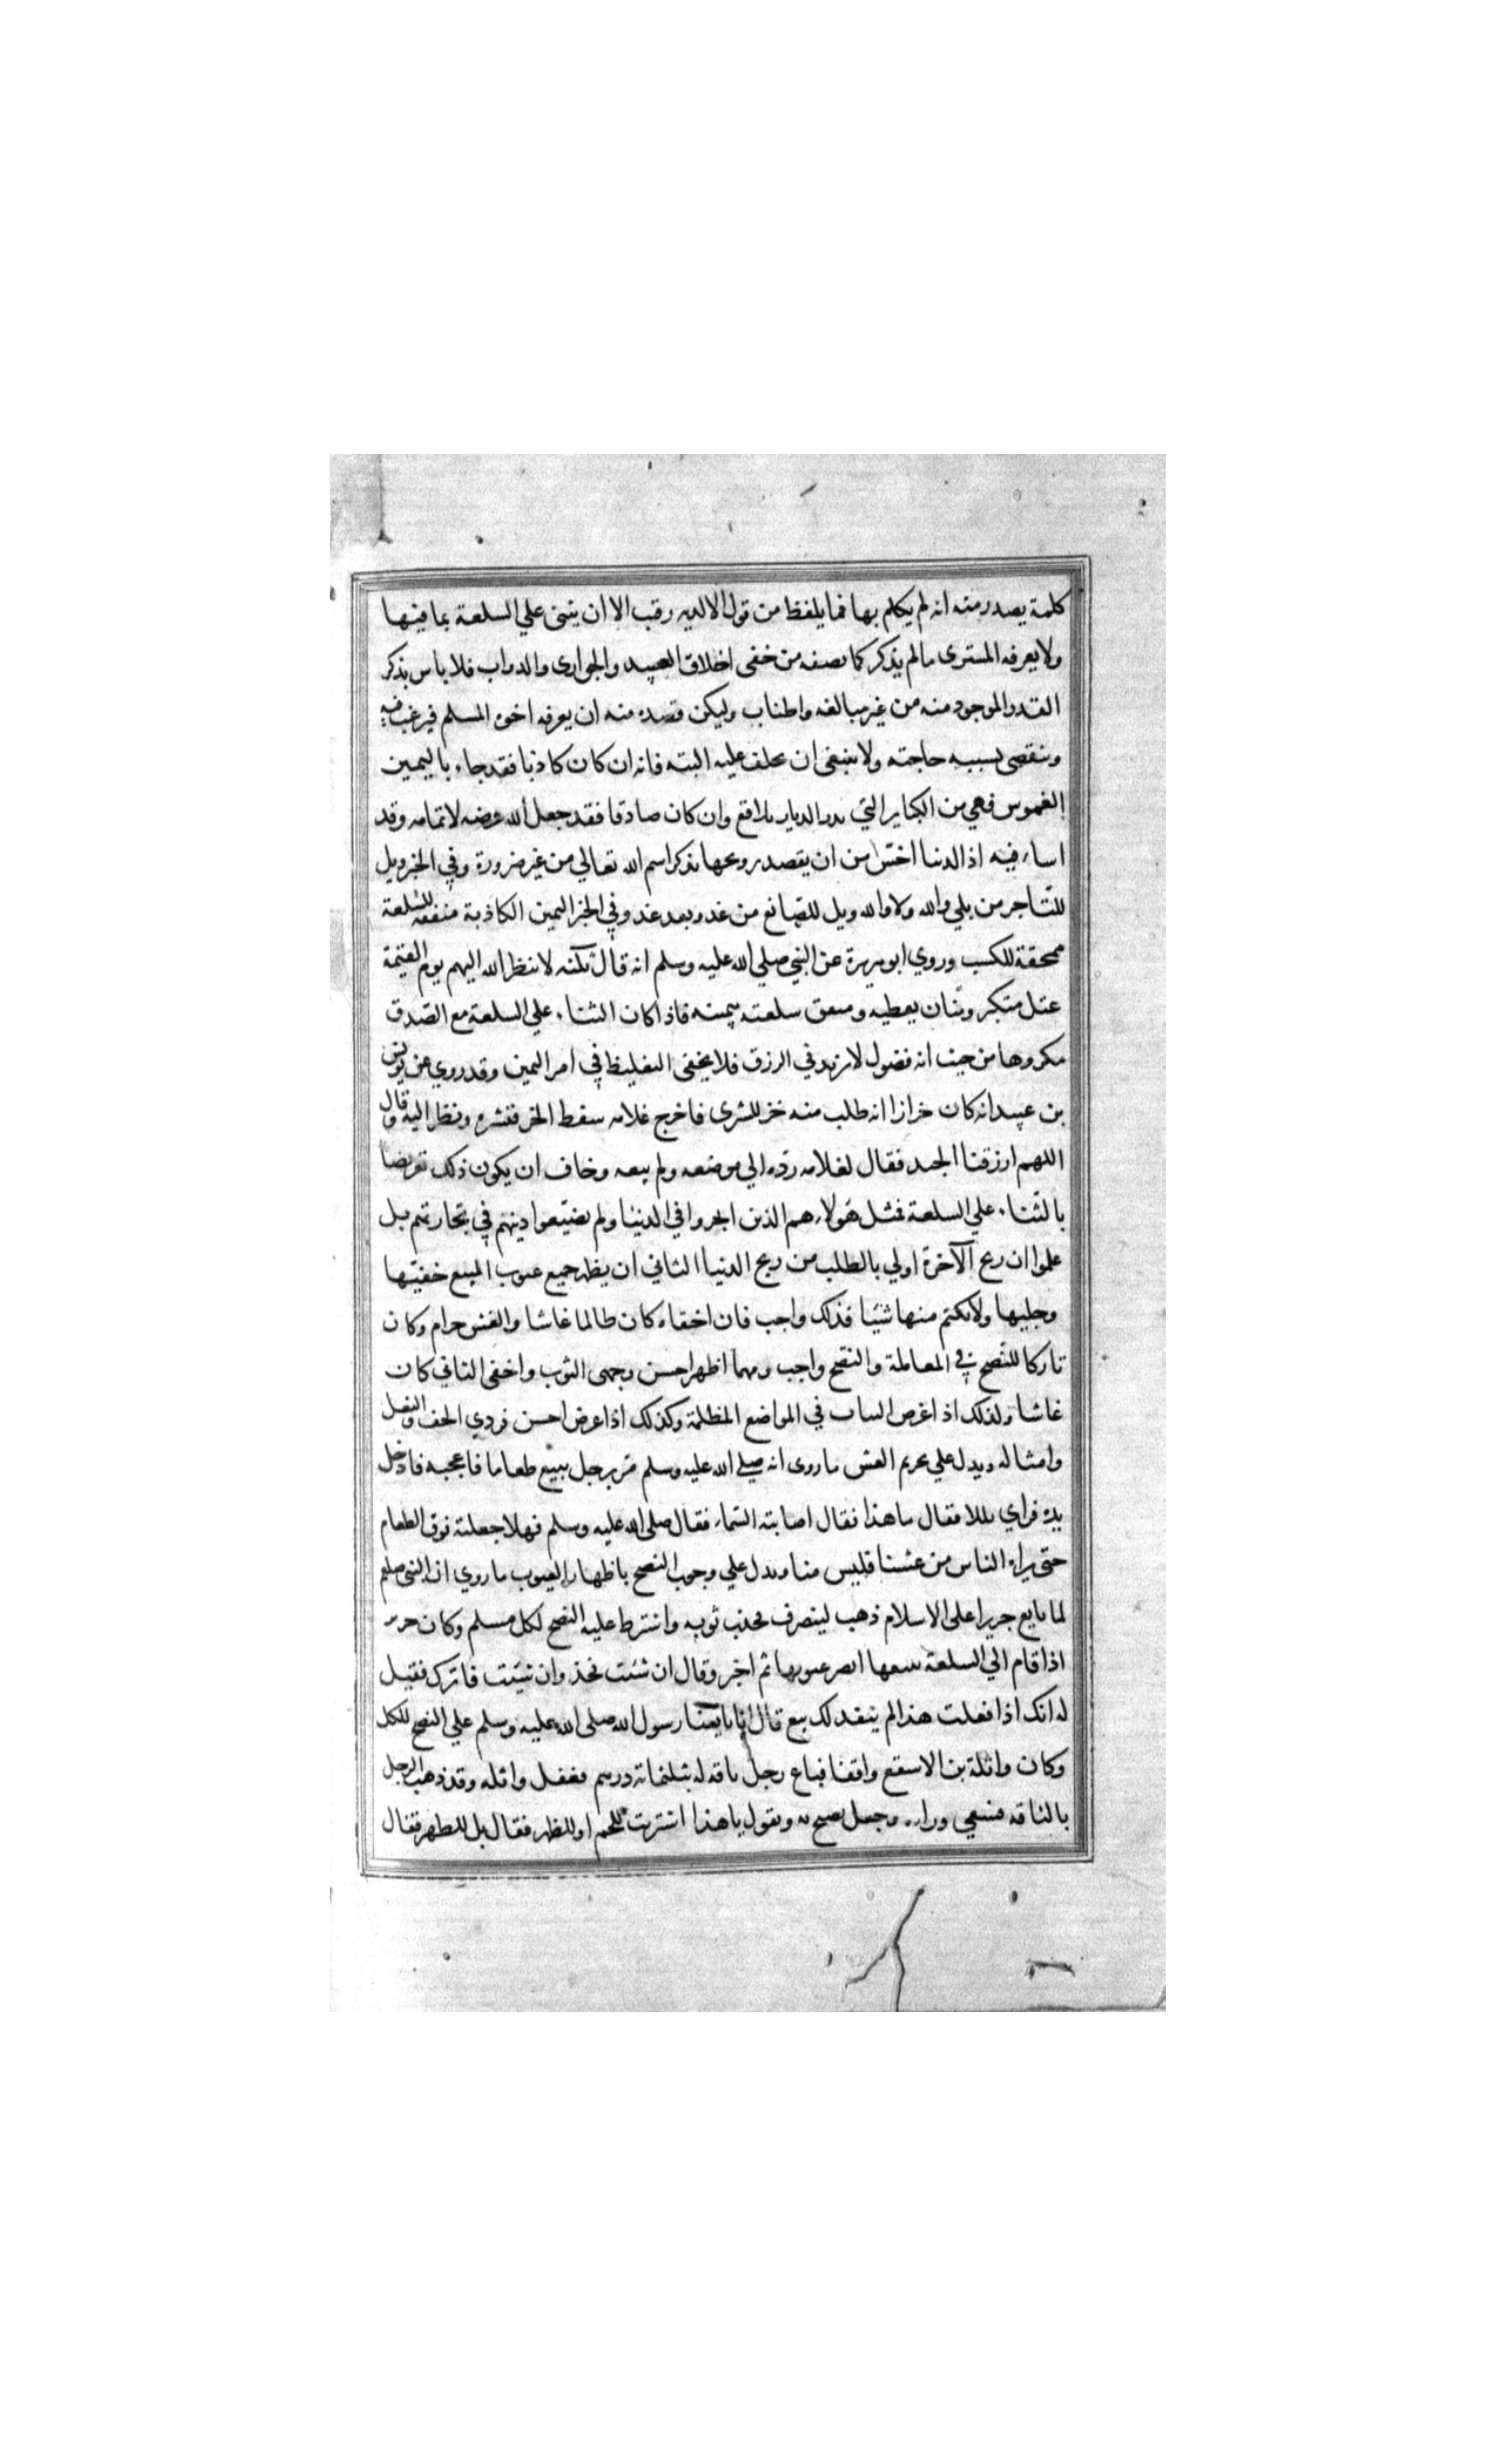 كلمة يصدر منه انه لم يكلم بها فما يلفظ من قول الا لديه رقيب الا ان يثنى علي السلعة بما فيها
ولا يعرفه المسترى مالم يذكر كما يصفه من خفى اخلاق العبيد والجوارى والدواب فلا باس بذكر
القدر الموجود منه من غير مبالغه واطناب وليكن قصده منه ان يعرفه اخوه المسلم فيرغب فيه
وينقصى بسببه حاجته ولا ينبغى ان يحلف عليه البته فانه ان كان كاذبا فقد جاء باليمين
الغموس فهي من الكباير التي تدر الديار بلاقع وان كان صادقا فقد جعل الله عرضه لايمانه وقد
اساء فيه اذ الدنيا اخسّ من ان يقصد روجها بذكر اسم الله تعالي من غير ضرورة وفي الخبر ويل
للتاجر من بلي والله ولا والله ويل للصانع من غد وبعد غد وفي الخبر اليمين الكاذبة منفقه للسلعة
ممحقة للكسب وروي ابو هريرة عن النبي صلي الله عليه وسلم انه قال ثلثه لا ينظر الله اليهم يوم القيمة
عتل متكبر ومنان يعطيه ومنفق سلعته بيمينه فاذا كان الثناء علي السلعة مع الصدق
مكروها من حيث انه فضول لا يزيد في الرزق فلا يخفى التغليظ في امر اليمين وقد روي عن يونس
بن عبيد انه كان خزازا انه طلب منه خز للشرى فاخرج غلامه سفط الخز فنشره ونظر اليه وقال
اللهم ارزقنا الجنه فقال لغلامه ردّه الي موضعه ولم يبعه وخاف ان يكون ذلك تعريضا
بالثناء علي السلعة فمثل هولاء هم الذين اتجروا في الدنيا ولم يضيّعوا دينهم في تجارتهم بل
علموا ان ربح الآخرة اولي بالطلب من ربح الدنيا الثاني ان يظهر جميع عيوب المبيع خفيّها
وجليها ولا يكتم منها شيئا فذلك واجب فان اخفاه كان ظالما غاشا والغش حرام وكان
تاركا للنصح في المعاملة والنصح واجب ومهما اظهر احسن وجهى الثوب واخفى الثاني كان
غاشا ولذلك اذا عرض الثياب في المواضع المظلمة وكذلك اذا عرض احسن فردي الخف والنعل
وامثاله ويدل علي تحريم الغش ما روى انه صلي الله عليه وسلم مرّ برجل يبيع طعاما فاعجبه فادخل
يده فراي بللا فقال ما هذا فقال اصابته السّماء فقال صلى الله عليه وسلم فهلا جعلته فوق الطعام
حتى يراه الناس من غشنا فليس منا ويدل علي وجوب النصح باظهار العيوب ما روي ان النبي صلعم
لما بايع جريرا على الاسلام ذهب لينصرف فجذب ثوبه واشترط عليه النصح لكل مسلم وكان جرير
اذا قام الي السلعة يبيعها ابصر عيوبها ثم اخبر وقال ان شئت فخذ وان شئت فاترك فقيل
له انك اذا فعلت هذا لم ينفد لك بيع قال انا بايعنا رسول الله صلى الله عليه وسلم علي النصح للكل
وكان واثلة بن الاسقع واقفا فباع رجل ناقه له بثلثمائة درهم فغفل واثله وقد ذهب الرجل
بالناقه فسعي وراءه وجعل يصيح به ويقول يا هذا اشتريت للحم او للظهر فقال بل للظهر فقال